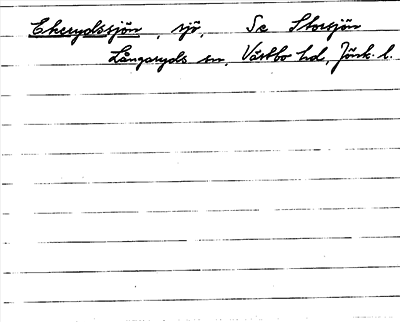 Ekerydssjön, sjö, Se Storsjön
Långaryds sn, Västbo hd, Jönk. l.